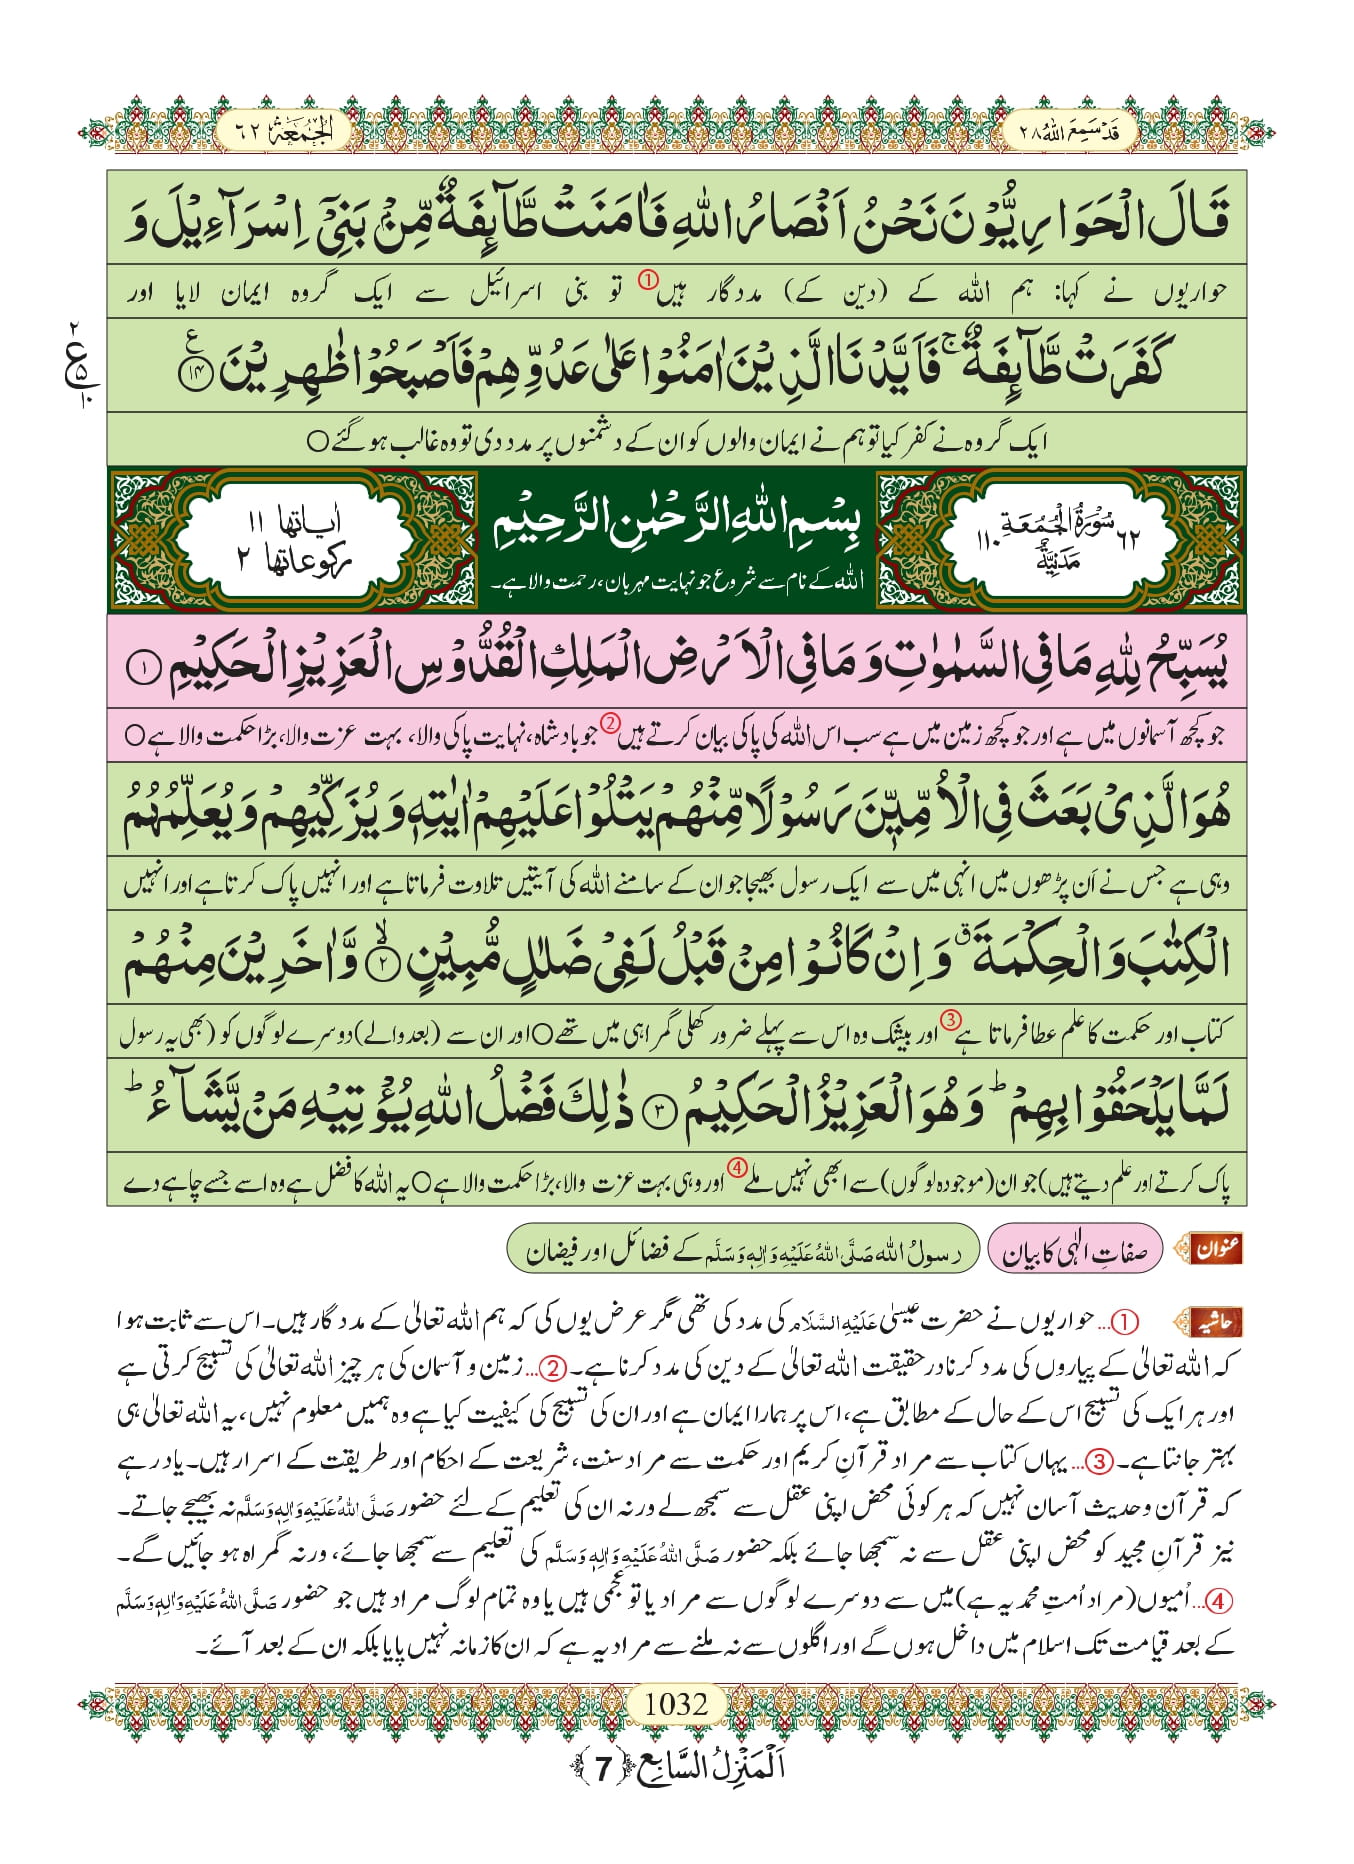 قَدْسَمِعَ اللّٰهُ ۲۸
الْجُمُعَة ۶۲
قَالَ الْحَوَارِیُّوْنَ نَحْنُ اَنْصَارُ اللّٰهِ فَاٰمَنَتْ طَّآىٕفَةٌ مِّنْۢ بَنِیْۤ اِسْرَآءِیْلَ وَ
حواریوں نے کہا: ہم اللہ کے (دین کے) مددگار ہیں① تو بنی اسرائیل سے ایک گروہ ایمان لایا اور
كَفَرَتْ طَّآىٕفَةٌ ۚ فَاَیَّدْنَا الَّذِیْنَ اٰمَنُوْا عَلٰى عَدُوِّهِمْ فَاَصْبَحُوْا ظٰهِرِیْنَ ﴿۱۴﴾ ع
۲
ع
۵
۱۰
ایک گروہ نے کفر کیا تو ہم نے ایمان والوں کو ان کے دشمنوں پر مدد دی تو وہ غالب ہو گئے○
۶۲ سُوْرَةُ الْجُمُعَةِ ۱۱۰
مَدَنِیَّةٌ
بِسْمِ اللّٰهِ الرَّحْمٰنِ الرَّحِیْمِ
اللہ کے نام سے شروع جو نہایت مہربان، رحمت والا ہے۔
اٰیاتها ۱۱
ركوعاتها ۲
یُسَبِّحُ لِلّٰهِ مَا فِی السَّمٰوٰتِ وَ مَا فِی الْاَرْضِ الْمَلِكِ الْقُدُّوْسِ الْعَزِیْزِ الْحَكِیْمِ ﴿۱﴾
جو کچھ آسمانوں میں ہے اور جو کچھ زمین میں ہے سب اس اللہ کی پاکی بیان کرتے ہیں② جو بادشاہ، نہایت پاکی والا، بہت عزت والا، بڑا حکمت والا ہے○
هُوَ الَّذِیْ بَعَثَ فِی الْاُمِّیّٖنَ رَسُوْلًا مِّنْهُمْ یَتْلُوْا عَلَیْهِمْ اٰیٰتِهٖ وَ یُزَكِّیْهِمْ وَ یُعَلِّمُهُمُ
وہی ہے جس نے اَن پڑھوں میں انہی میں سے ایک رسول بھیجا جو ان کے سامنے اللہ کی آیتیں تلاوت فرماتا ہے اور انہیں پاک کرتا ہے اور انہیں
الْكِتٰبَ وَ الْحِكْمَةَ ۗ وَ اِنْ كَانُوْا مِنْ قَبْلُ لَفِیْ ضَلٰلٍ مُّبِیْنٍ ﴿۲﴾ۙ وَّ اٰخَرِیْنَ مِنْهُمْ
کتاب اور حکمت کا علم عطا فرماتا ہے③ اور بیشک وہ اس سے پہلے ضرور کھلی گمراہی میں تھے○ اور ان سے (بعد والے) دوسرے لوگوں کو (بھی یہ رسول
لَمَّا یَلْحَقُوْا بِهِمْ ؕ وَ هُوَ الْعَزِیْزُ الْحَكِیْمُ ﴿۳﴾ ذٰلِكَ فَضْلُ اللّٰهِ یُؤْتِیْهِ مَنْ یَّشَآءُ ؕ
پاک کرتے اور علم دیتے ہیں) جو ان (موجودہ لوگوں) سے ابھی نہیں ملے④ اور وہی بہت عزت والا، بڑا حکمت والا ہے○ یہ اللہ کا فضل ہے وہ اسے جسے چاہے دے
عنوان صفاتِ الٰہی کا بیان رسولُ اللہ صَلَّی اللّٰهُ عَلَیْهِ وَاٰلِهٖ وَسَلَّم کے فضائل اور فیضان
حاشیہ ①... حواریوں نے حضرت عیسیٰ عَلَیْهِ السَّلَام کی مدد کی تھی مگر عرض یوں کی کہ ہم اللہ تعالیٰ کے مددگار ہیں۔ اس سے ثابت ہوا
کہ اللہ تعالیٰ کے پیاروں کی مدد کرنا درحقیقت اللہ تعالیٰ کے دین کی مدد کرنا ہے۔ ②... زمین و آسمان کی ہر چیز اللہ تعالیٰ کی تسبیح کرتی ہے
اور ہر ایک کی تسبیح اس کے حال کے مطابق ہے، اس پر ہمارا ایمان ہے اور ان کی تسبیح کی کیفیت کیا ہے وہ ہمیں معلوم نہیں، یہ اللہ تعالیٰ ہی
بہتر جانتا ہے۔ ③... یہاں کتاب سے مراد قرآنِ کریم اور حکمت سے مراد سنت، شریعت کے احکام اور طریقت کے اسرار ہیں۔ یاد رہے
کہ قرآن و حدیث آسان نہیں کہ ہر کوئی محض اپنی عقل سے سمجھ لے ورنہ ان کی تعلیم کے لئے حضور صَلَّی اللّٰهُ عَلَیْهِ وَاٰلِهٖ وَسَلَّم نہ بھیجے جاتے۔
نیز قرآنِ مجید کو محض اپنی عقل سے نہ سمجھا جائے بلکہ حضور صَلَّی اللّٰهُ عَلَیْهِ وَاٰلِهٖ وَسَلَّم کی تعلیم سے سمجھا جائے، ورنہ گمراہ ہو جائیں گے۔
④... اُمیوں (مراد اُمتِ محمدیہ ہے) میں سے دوسرے لوگوں سے مراد یا تو عجمی ہیں یا وہ تمام لوگ مراد ہیں جو حضور صَلَّی اللّٰهُ عَلَیْهِ وَاٰلِهٖ وَسَلَّم
کے بعد قیامت تک اسلام میں داخل ہوں گے اور اگلوں سے نہ ملنے سے مراد یہ ہے کہ ان کا زمانہ نہیں پایا بلکہ ان کے بعد آئے۔
1032
اَلْمَنْزِلُ السَّابِع ﴿7﴾